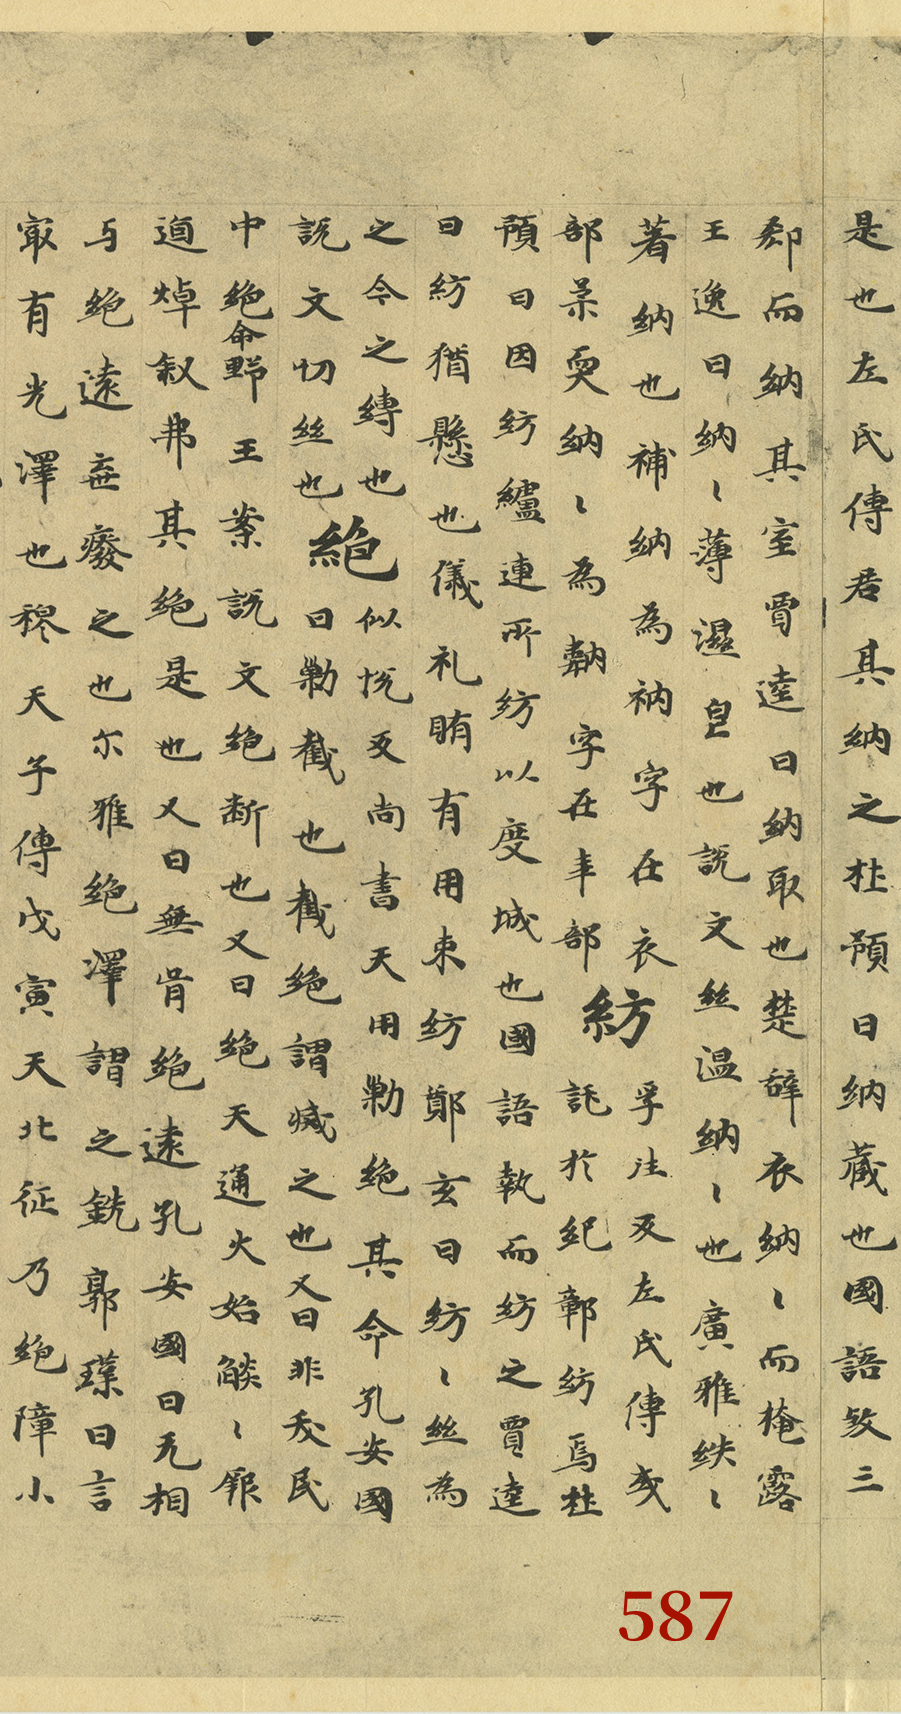 是也左氏傳君其納之杜預曰納藏也國語煞三
郄而納其室賈逵曰納取也楚辞衣納〻而掩露
王逸曰納〻薄濕皃也說文絲温納〻也廣雅紩〻
著納也補納為衲字在衣 孚注反左氏傳或
部柔耎納〻為䪏字在韋部紡 託於紀鄣紡焉杜
預曰因紡纑連所紡以度城也國語執而紡之賈逵
曰紡猶懸也儀礼賄有用束紡鄭玄曰紡〻絲為
之今之縳也 似悅反尚書天用勦絕其命孔安國
說文切絲也絶曰勦截也截絕謂滅之也又曰非夭民
中絕命野王案說文絕断也又曰絕天通火始燄〻厥
逌焯叙弗其絕是也又曰無胥絕遠孔安國曰無相
与絕遠棄癈之也尓雅絕澤謂之銑郭璞曰言
冣有光澤也穆天子傳戊寅天北征乃絕障小
587